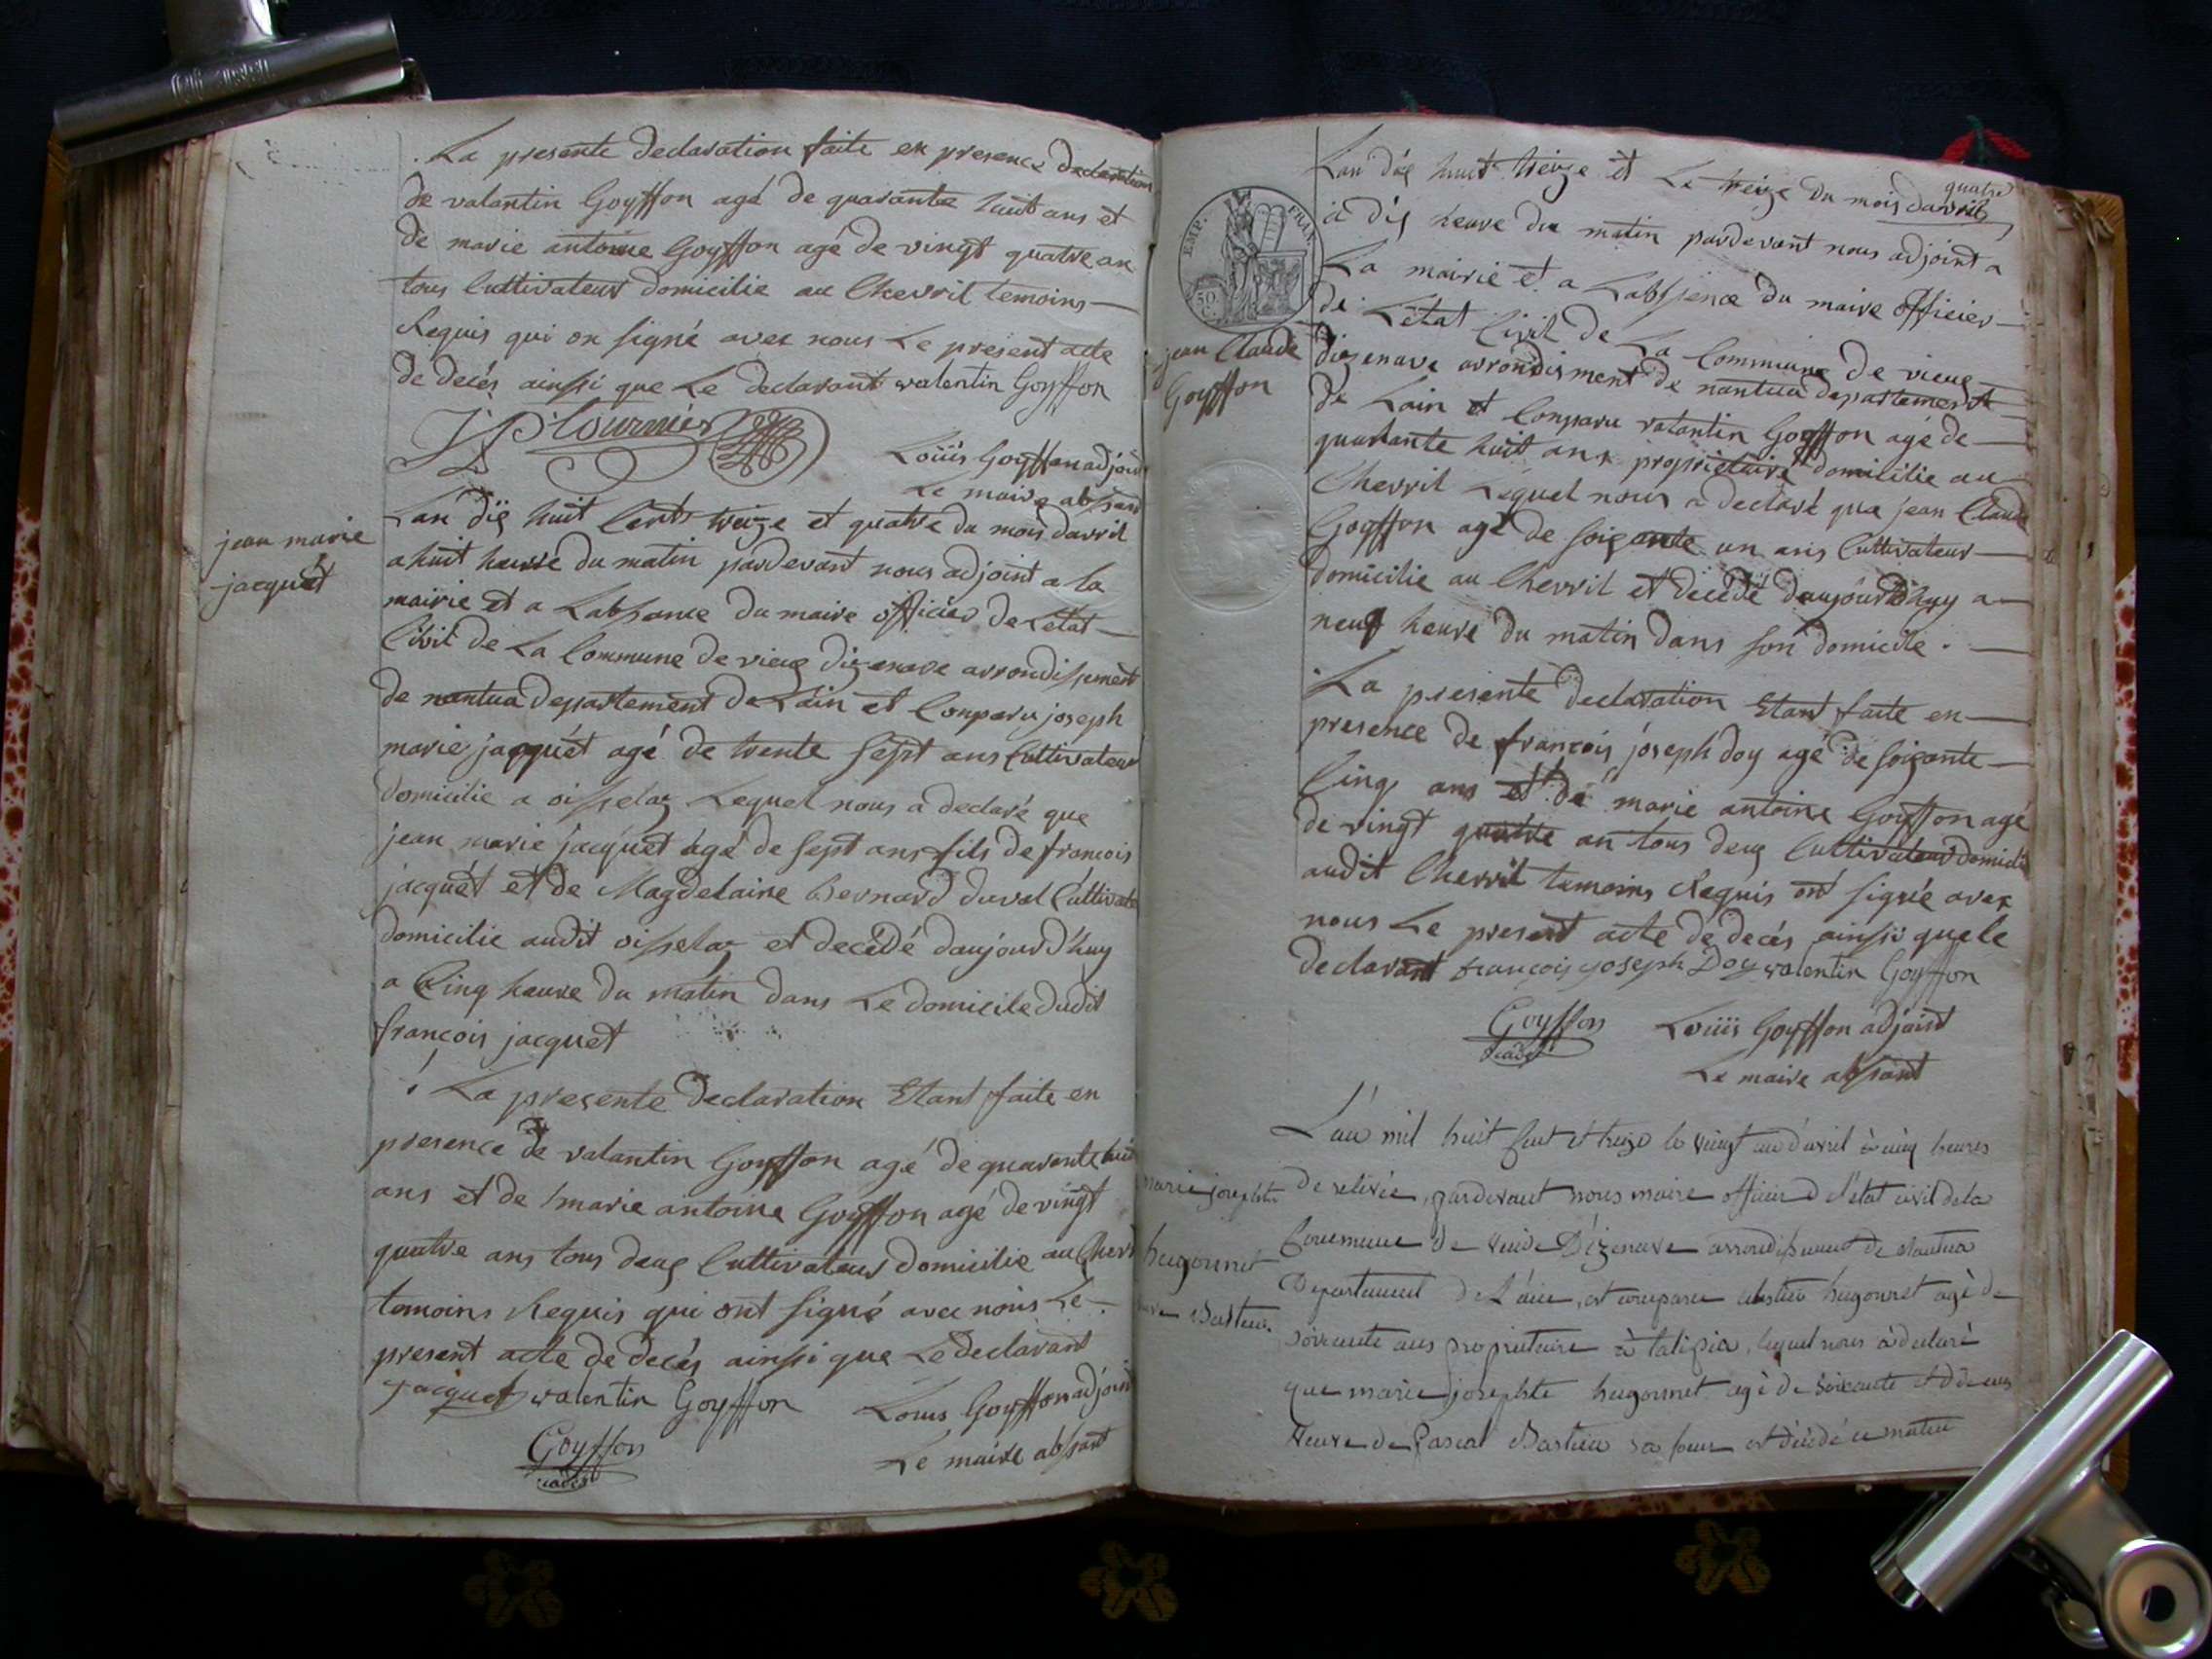 La presente declaration faite en presence declaration
de valantin Goyffon agé de quarante huit ans et
de marie antoine Goyffon agé de vingt quatre an
tous Cultivateur domicilie au Chevril temoins
Requis qui on signé avec nous Le present acte
de decés ainssi que Le declarant walentin Goyffon
Louis Goyffon adjoint
Le maire absant
jean marie
jacquet
Lan dix huit Cents treize et quatre du mois davril
a huit heure du matin pardevant nous adjoint a la
mairie et a Labssance du maire officier de Létat
Civil de La Commune de vieux dizenave arrondissement
de nantua departement de Lain et Comparu joseph
marie jacquet agé de trente sept ans Cultivateur
domicilie a oisselaz Lequel nous a declaré que
jean marie jacquet agé de sept ans fils de francois
jacquet et de Magdelaine bernard duval Cultivate
domicilie audit oisselaz et decédé daujourd'huy
a Cinq heure du matin dans Le domicile dudit
francois jacquet
La presente declaration Etant faite en
presence de valantin Goyffon agé de quarante huit
ans et de marie antoine Goyffon agé de vingt
quatre ans tous deux Cultivateur domicilie au Chevr
temoins Requis qui ont signé avec nous Le
present acte de decés ainssi que Le declarant
Jacquet walentin Goyffon Louis Goyffon adjoint
Goyffon
cadet
Le maire absant
EMP. FRAN.
50 C.
jean Claude
Goyffon
Lan dix huit treize et Le treize du mois davril
quatre
à dix heure du matin pardevant nous adjoint a
La mairie et a Labssence du maire officier
de Létat Civil de La Commune de vieux
dizenave arrondisment de nantua departement
de Lain et Comparu valantin Goyffon agé de
quarante huit ans proprietaire domicilie au
Chevril Lequel nous a declaré que jean Claude
Goyffon agé de soixante un ans Cultivateur
domicilie au Chevril et decédé daujourdhuy a
neuf heure du matin dans son domicile.
La presente declaration Etant faite en
presence de francois joseph doy agé de soixante
Cinq ans et de marie antoine Goyffon agé
de vingt quatre an tous deux Cultivateur domicili
audit Chevril temoins Requis ont signée avec
nous Le present acte de decés ainssi que le
declarant francois joseph Doy walentin Goyffon
Goyffon
cadet
Louis Goyffon adjoint
Le maire absant
marie josephte
hugonnet
L'an mil huit cent et treize le vingt un d'avril à cinq heures
de relevée, pardevant nous maire officier d l'état civil de la
Commune de vieu D'izenave arrondissement de Nantua
Département de L'ain, est comparu hugonnet agé de
soixante ans proprietaire à, lequel nous à declaré
que marie josephte hugonnet agé de soixante et dix ans
veuve de Pascal Bastien sa soeur est décédé ce matin